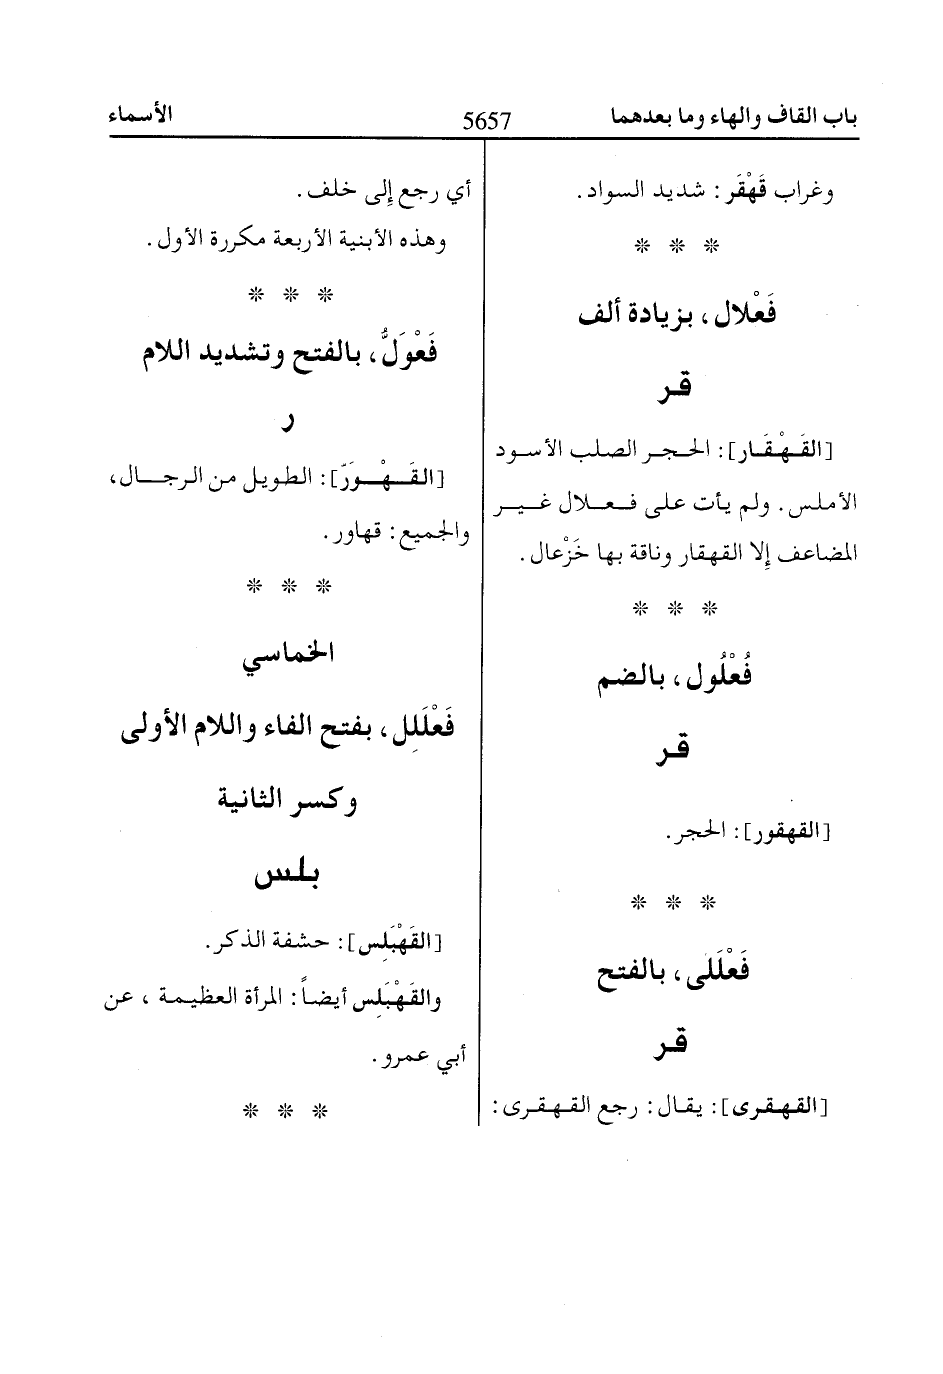 باب القاف والهاء وما بعدهما 5657 الأسماء
وغراب قَهْقَر: شديد السواد.
* * *
فَعْلال، بزيادة ألف
قر
[القَهْقَار]: الحجر الصلب الأسود
الأملس. ولم يأت على فعلال غير
المضاعف إِلا القهقار وناقة بها خَزْعال.
* * *
فُعْلُول، بالضم
قر
[القهقور]: الحجر.
* * *
فَعْلَلى، بالفتح
قر
[القهقرى]: يقال: رجع القهقرى:
أي رجع إِلى خلف.
وهذه الأبنية الأربعة مكررة الأول.
* * *
فَعْوَلُّ، بالفتح وتشديد اللام
ر
[القَهْوَرّ]: الطويل من الرجال،
والجميع: قهاور.
* * *
الخماسي
فَعْلَلِل، بفتح الفاء واللام الأولى
وكسر الثانية
بلس
[القَهْبَلِس]: حشفة الذكر.
والقَهْبَلِس أيضاً: المرأة العظيمة، عن
أبي عمرو.
* * *